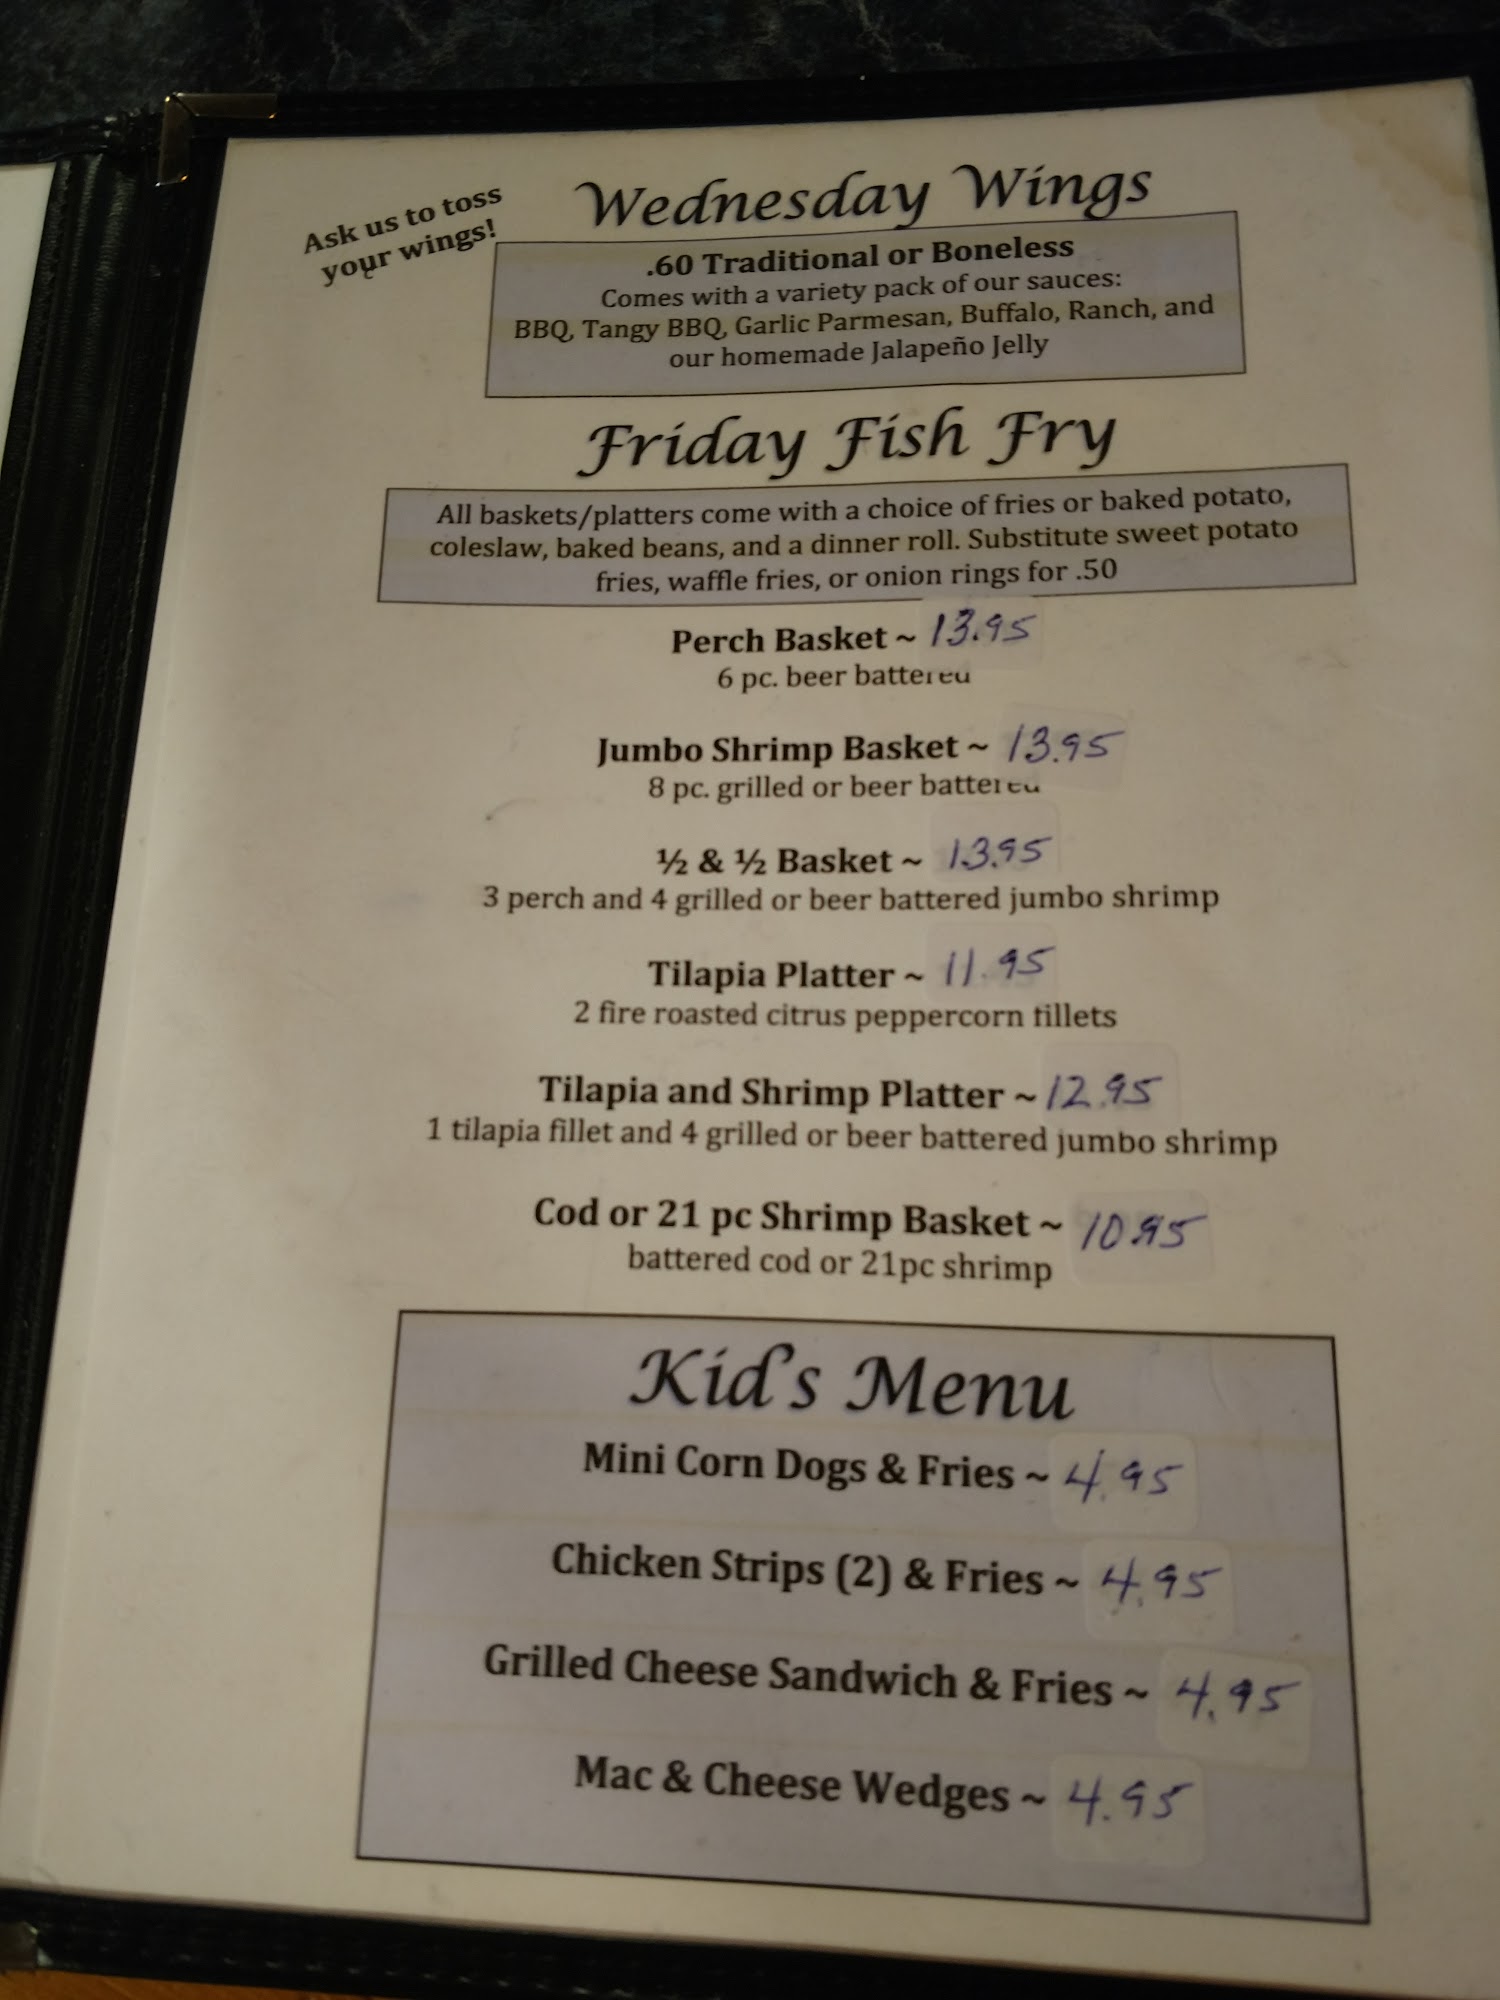 Ask us to toss
your wings!
Wednesday Wings
.60 Traditional or Boneless
Comes with a variety pack of our sauces:
BBQ, Tangy BBQ, Garlic Parmesan, Buffalo, Ranch, and
our homemade Jalapeño Jelly
Friday Fish Fry
All baskets/platters come with a choice of fries or baked potato,
coleslaw, baked beans, and a dinner roll. Substitute sweet potato
fries, waffle fries, or onion rings for .50
Perch Basket ~ 13.95
6 pc. beer battered
Jumbo Shrimp Basket ~ 13.95
8 pc. grilled or beer battered
½ & ½ Basket ~ 13.95
3 perch and 4 grilled or beer battered jumbo shrimp
Tilapia Platter ~ 11.95
2 fire roasted citrus peppercorn fillets
Tilapia and Shrimp Platter ~ 12.95
1 tilapia fillet and 4 grilled or beer battered jumbo shrimp
Cod or 21 pc Shrimp Basket ~ 10.95
battered cod or 21pc shrimp
Kid's Menu
Mini Corn Dogs & Fries ~ 4.95
Chicken Strips (2) & Fries ~ 4.95
Grilled Cheese Sandwich & Fries ~ 4.95
Mac & Cheese Wedges ~ 4.95